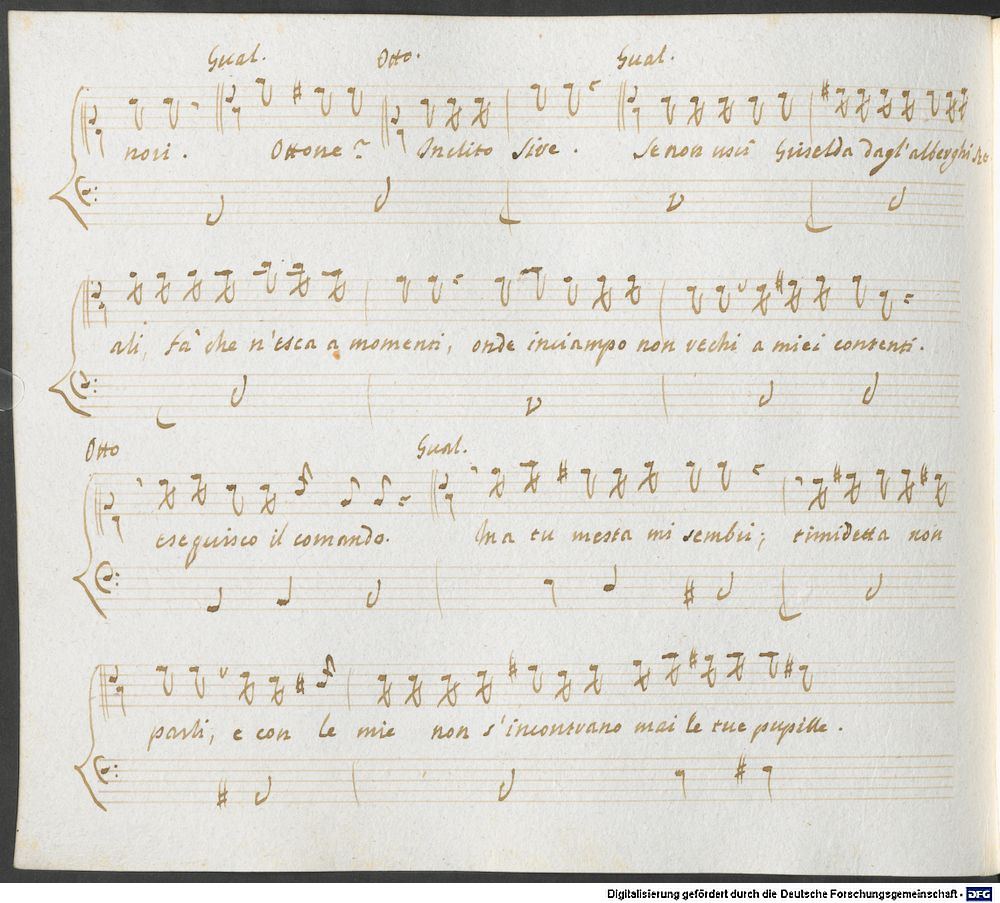 Gual. Otto. Gual.
nori. Ottone? Inclito Sire. Se non uscì Griselda dagl'alberghi Re-
ali, fà che n'esca a momenti, onde inciampo non rechi a miei contenti.
Otto Gual.
eseguisco il comando. Ma tu mesta mi sembri; timidetta non
parli, e con le mie non s'incontrano mai le tue pupille.
Digitalisierung gefördert durch die Deutsche Forschungsgemeinschaft - DFG